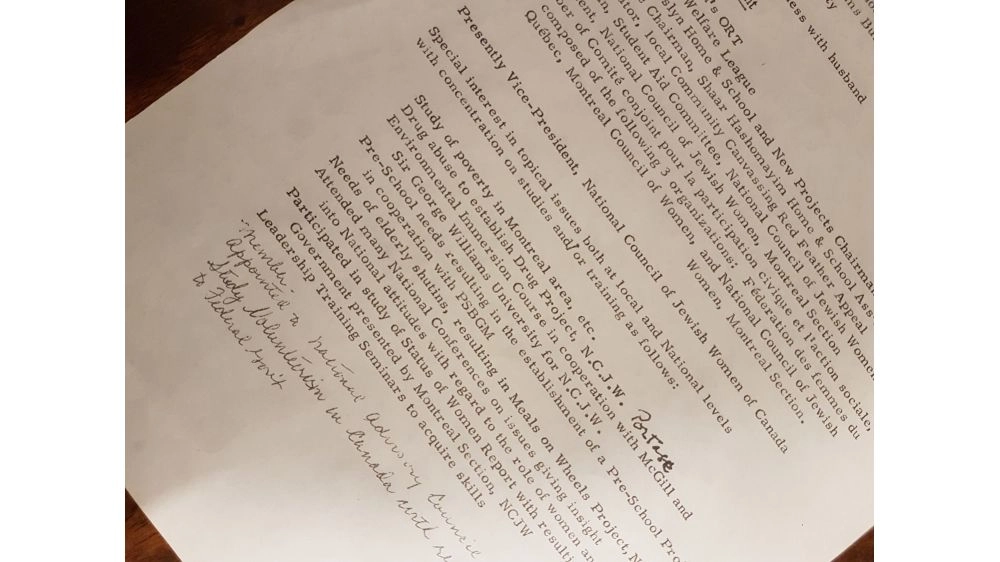 ess with husband
's ORT
Welfare League
slyn Home & School and New Projects Chairman
Chairman, Shaar Hashomayim Home & School Ass
tor, local Community Canvassing Red Feather Appeal
n, Student Aid Committee, National Council of Jewish Women
ent, National Council of Jewish Women, Montreal Section
ber of Comité conjoint pour la participation civique et l'action sociale,
composed of the following 3 organizations: Fédération des femmes du
Québec, Montreal Council of Women, and National Council of Jewish
Women, Montreal Section.
Presently Vice-President, National Council of Jewish Women of Canada
Special interest in topical issues both at local and National levels
with concentration on studies and/or training as follows:
Study of poverty in Montreal area, etc.
Drug abuse to establish Drug Project, N.C.J.W. Portage
Environmental Immersion Course in cooperation with McGill and
Sir George Williams University for N.C.J.W.
Pre-School needs resulting in the establishment of a Pre-School Pro
in cooperation with PSBGM
Needs of elderly shutins, resulting in Meals on Wheels Project, N
Attended many National Conferences on issues giving insight
into National attitudes with regard to the role of women an
Participated in study of Status of Women Report with resulti
Government presented by Montreal Section, NCJW
Leadership Training Seminars to acquire skills
Member
Appointed to National Advisory Council
Study Volunteerism in Canada with re
to Federal Gov't